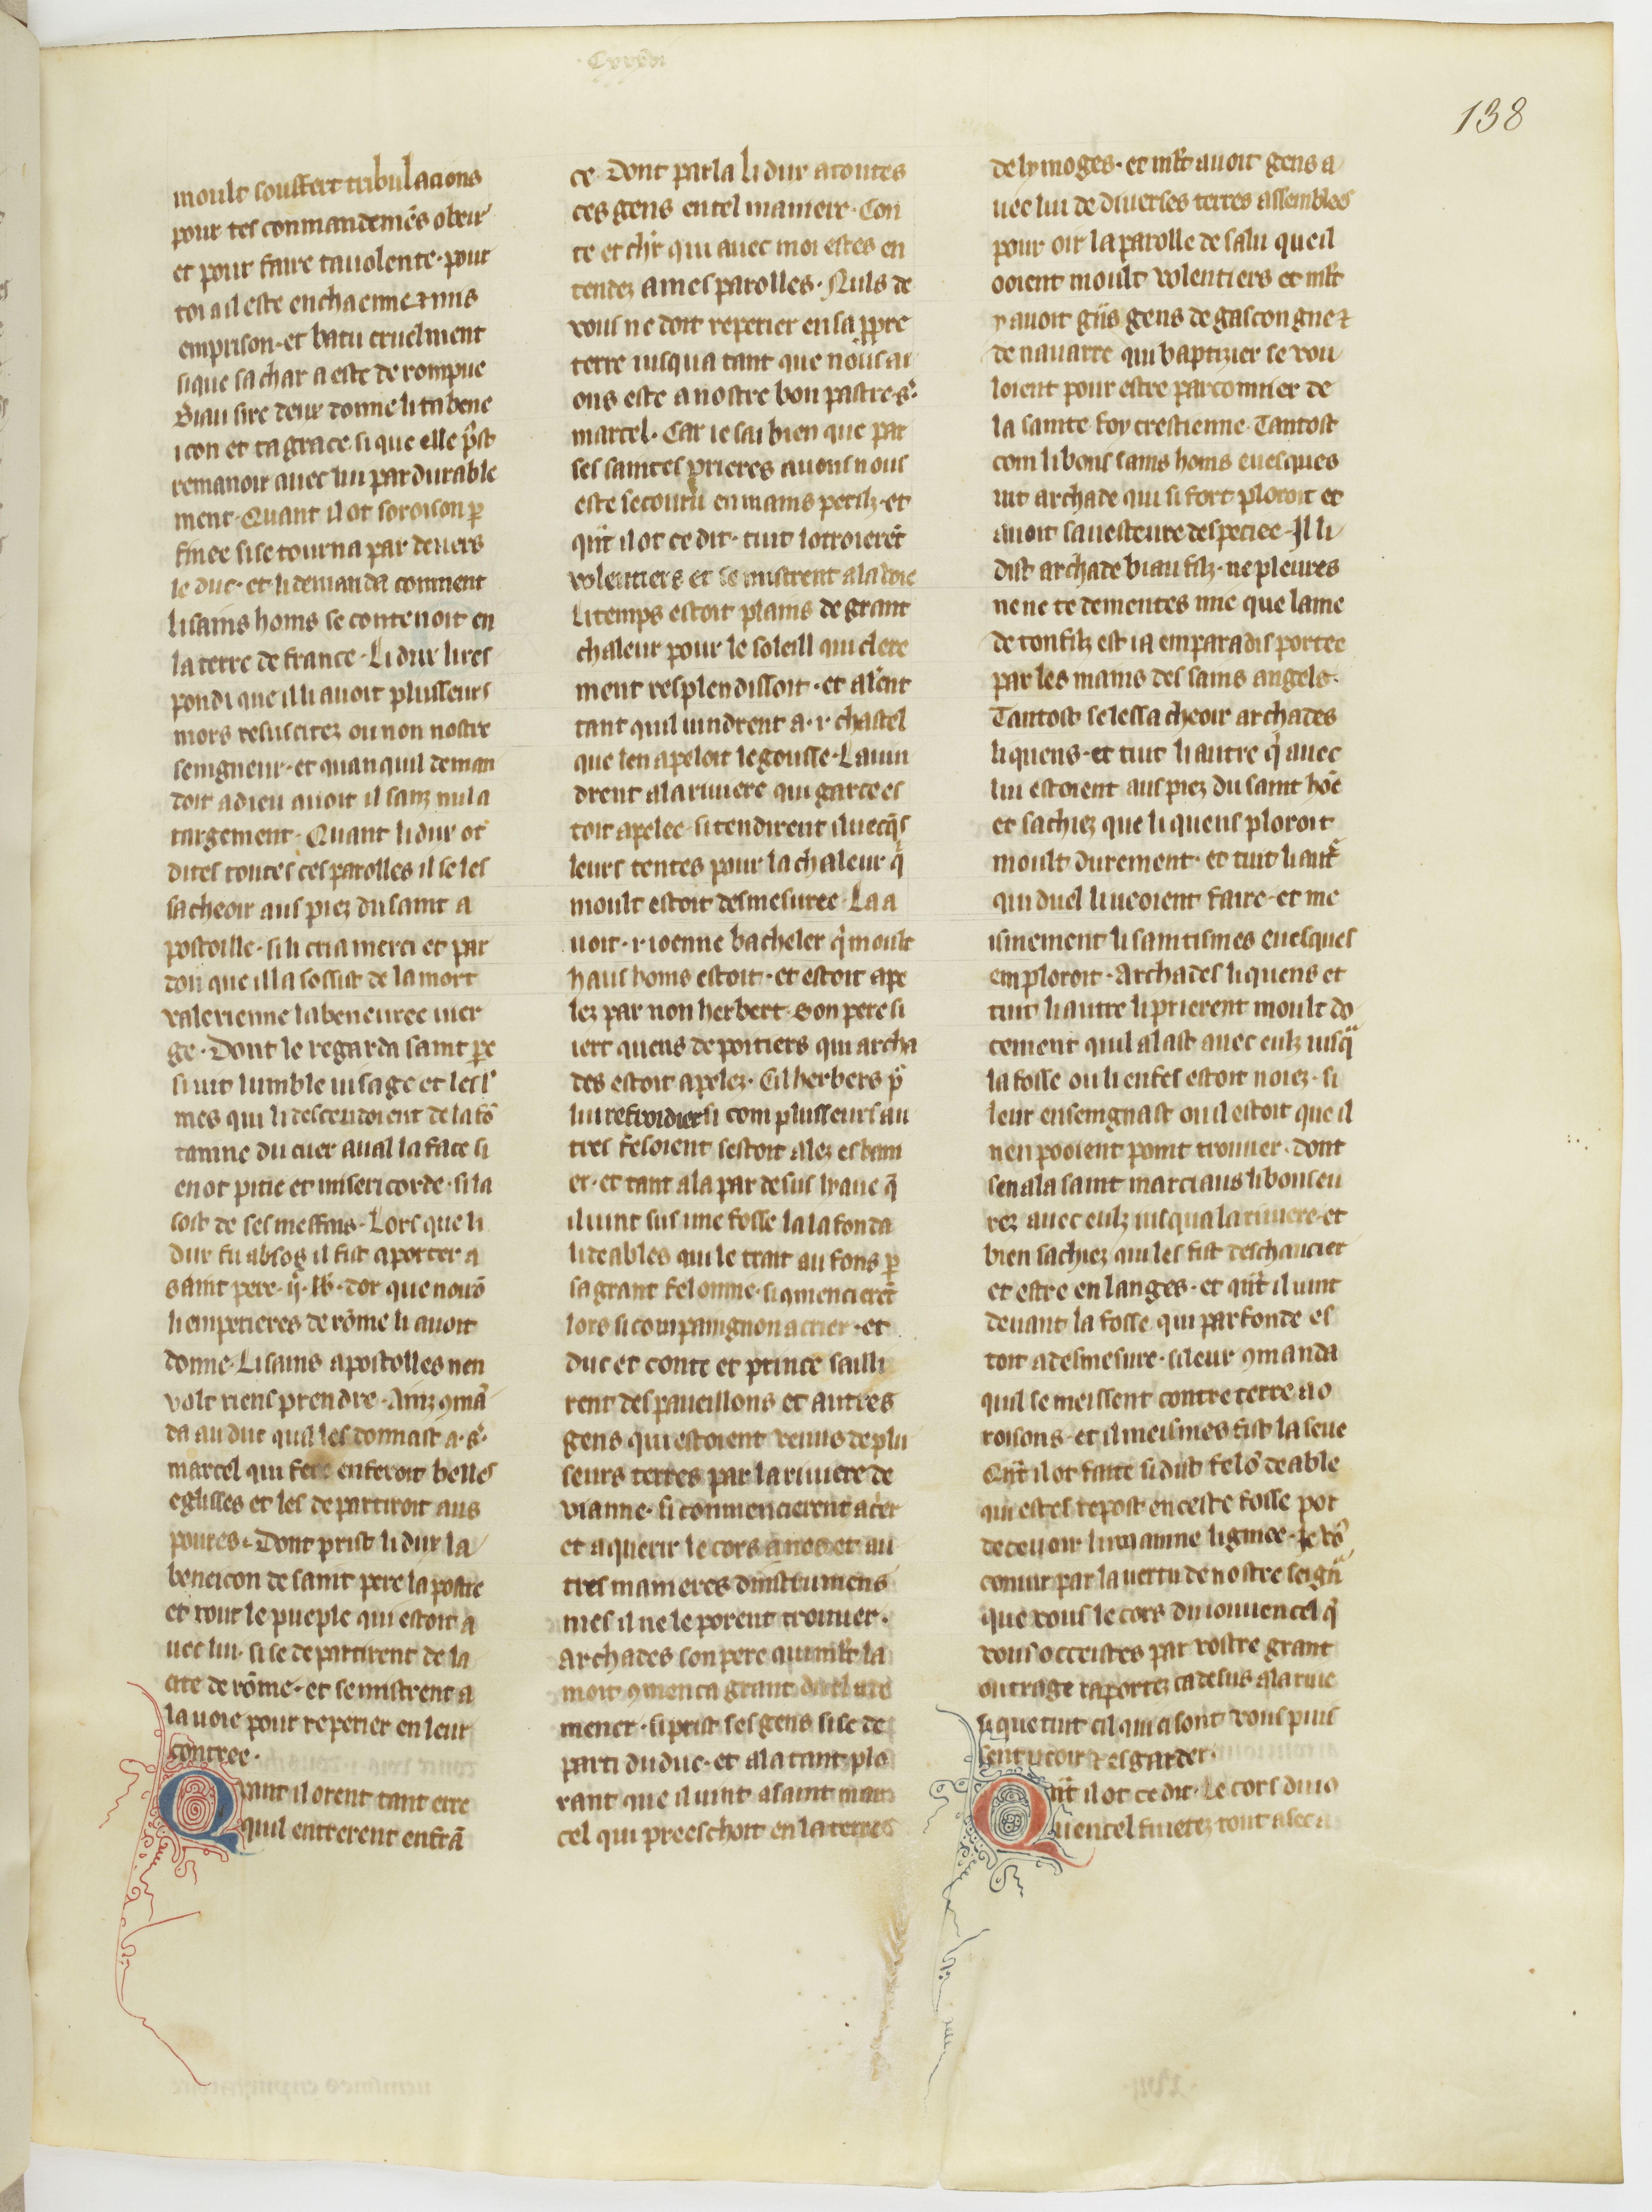 138
moult souffert tribulacions
pour tes conmandemēs obeir
et pour faire ta uolente. pour
toi a il este enchaenne ⁊ mis
emprison. et batu cruelment
si que sa char a este de rompue
Biau sire deux donne li ta bene
icon et ta grace. si que elle p̄st
remanoir auec lui par durable
ment. Quant il ot soroison ꝑ
finee si se tourna par deuers
le duc. et li demanda comment
li sains homs se contenoit en
la terre de france. Li dux li res
pondi que il li auoit plusseurs
mors resuscitez ou non nostre
seingneur. et quanquil deman
doit a dieu auoit il sanz nul a
targement. Quant li dux ot
dites toutes ces parolles il se les
sa cheoir aus piez du saint a
postoille. si li cria merci et par
don que il la sossist de la mort
valerienne la beneuree uier
ge. Dont le regarda saint pe
si uit lumble uisage et les l'
mes qui li descendoient de la fō
tainne du cuer aual la face si
en ot pitie et misericorde. si la
sost de ses meffais. Lors que li
dux fu absos il fist aporter a
saint pere. ij. lb. dor que nourō
li emperieres de rōme li auoit
donne. Li sains apostolles nen
volt riens prendre. Ainz 9mā
da au duc quil les donnast a. s'.
marcel qui feroit belles
eglisses et les departiroit aus
poures. Dont prist li dux la
beneicon de saint pere lapostre
et tout le pueple qui estoit a
uec lui. si se departirent de la
cite de rōme. et se mistrent a
la uoie pour reperier en leur
contree.
Quant il orent tant erre
quil entrerent en frā
ce. Dont parla li dux a toutes
ces gens en tel maniere. Con
te et ch'r qui auec moi estes en
tendez a mes parolles. Nuls de
vous ne doit reperier en sa ꝓpre
terre iusqua tant que nous ai
ons este a nostre bon pastre. s'.
marcel. Car ie sai bien que par
ses saintes prieres auons nous
este secouru en mains perilz. et
qn̄t il ot ce dit. tuit lotroierēt
volentiers et se mistrent a la uoie
Li temps estoit plains de grant
chaleur pour le soleill qui clere
ment resplendissoit. et alerent
tant quil uindrent a .i. chastel
que len apeloit le gousse. La uin
drent a la riuiere qui garce es
toit apelee. si tendirent iluecq̄s
leurs tentes pour la chaleur q'
moult estoit desmesuree. La a
uoit .i. ioenne bacheler q' moult
haus homs estoit. et estoit ape
lez par non herbert. Son pere si
iert quens de poitiers qui archa
des estoit apelez. Cil herbers p̄
lui refroidier si com plusseurs au
tres fesoient sestoit alez esbani
er. et tant ala par desus lyaue q̄
il uint sus une fosse la la fonda
li deables qui le trait au fons ꝑ
sa grant felonnie. si 9mencierēt
lors si compaingnon a crier. et
duc et conte et prince sailli
rent des paueillons et autres
gens qui estoient venus de plu
seurs terres par la riuiere de
vianne. si conmencierent a cer
et a querir le cors a nos et au
tres manieres dinstrumens
mes il ne le porent trouuer.
Archades son pere qui mlt̄ la
moit 9menca grant duel a de
mener. si prist ses gens si se de
parti du duc. et ala tant plo
rant que il uint a saint mar
cel qui preeschoit en la terres
de lymoges. et mlt̄ auoit gens a
uec lui de diuerses terres assembles
pour oir la parolle de salu que il
ooient moult volentiers et mlt̄
y auoit gn̄s gens de gascongne ⁊
de nauarre qui baptizier se vou
loient pour estre parconnier de
la sainte foy crestienne. Tantost
com li bons sains homs euesques
uit archade qui si fort ploroit et
auoit sa uesteure despeciee. Il li
dist archade biau filz. ne pleures
ne ne te dementes mie que lame
de ton filz est ia em paradis portee
par les mains des sains angels.
Tantost se lessa cheoir archades
li quens. et tuit li autre q' auec
lui estoient aus piez du saint hōe
et sachiez que li quens ploroit
moult durement. et tuit li autr'
qui duel li ueoient faire. et me
ismement li saintismes euesques
em ploroit. Archades li quens et
tuit li autre li prierent moult do
cement quil alast auec eulz iusq̄
la fosse ou li enfes estoit noiez. si
leur enseingnast ou il estoit que il
nen pooient point trouuer. dont
sen ala saint marciaus li bons eu
rez auec eulz iusqua la riuiere. et
bien sachiez qui les fist deschaucier
et estre en langes. et qn̄t il uint
deuant la fosse qui parfonde es
toit a desmesure. si leur 9manda
quil se meissent contre terre a o
roisons. et il meismes fist la seue
Qn̄t il ot faite si dist felō deable
qui estes repost en ceste fosse por
deceuoir humainne lignee. Je vo'
coniur par la uertu de nostre seign̄
que vous le cors du iouuencel q'
vous occeistes par vostre grant
outrage raportez ca desus a la riue
si que tuit cil qui ci sont vous puis
sent ueoir ⁊ esgarder.
Qn̄t il ot ce dit. Le cors du io
uencel furietez tout a sec a